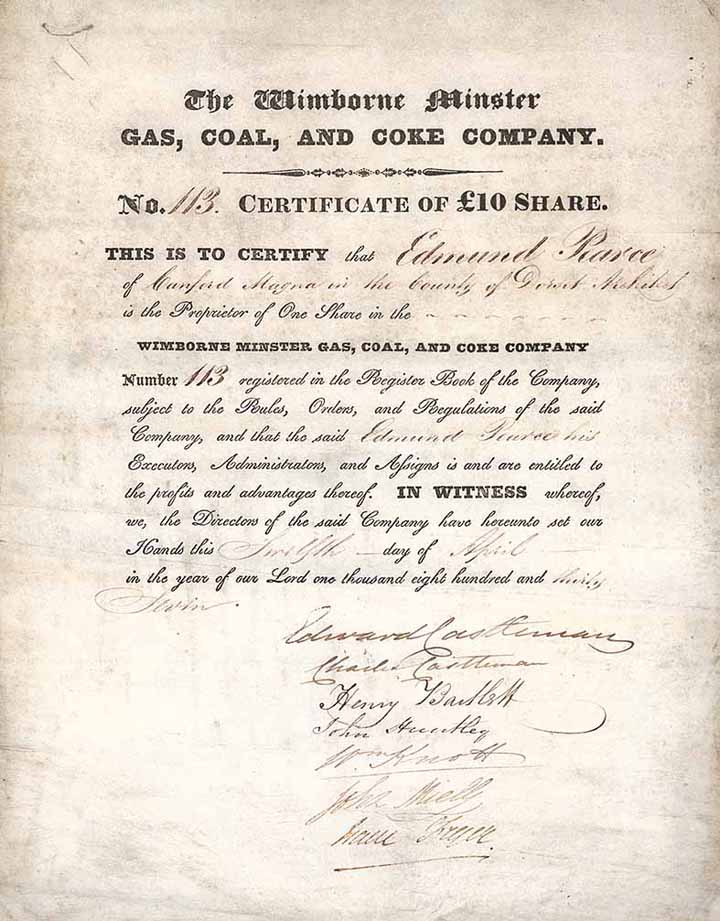 The Wimborne Minster
GAS, COAL, AND COKE COMPANY.
No. 113. CERTIFICATE OF £10 SHARE.
THIS IS TO CERTIFY that Edmund Pearce
of Canford Magna in the County of Dorset Architect
is the Proprietor of One Share in the
WIMBORNE MINSTER GAS, COAL, AND COKE COMPANY
Number 113 registered in the Register Book of the Company,
subject to the Rules, Orders, and Regulations of the said
Company, and that the said Edmund Pearce his
Executors, Administrators, and Aſsigns is and are entitled to
the profits and advantages thereof. IN WITNESS whereof,
we, the Directors of the said Company have hereunto set our
Hands this Twelfth day of April
in the year of our Lord one thousand eight hundred and thirty
Seven.
Edward Castleman
Charles Castleman
Henry Bartlett
John Huntley
Wm Knott
Miell
Fryer